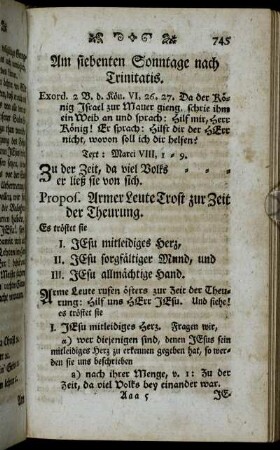 745
Am siebenten Sonntage nach
Trinitatis.
Exord. 2 B. d. Kön. VI, 26. 27. Da der Kö-
nig Israel zur Mauer gieng, schrie ihn
ein Weib an und sprach: Hilf mir, Herr
König! Er sprach: Hilft dir der HErr
nicht, wovon soll ich dir helfen?
Text: Marci VIII, 1-9.
Zu der Zeit, da viel Volks - - -
er ließ sie von sich.
Propos. Armer Leute Trost zur Zeit
der Theurung.
Es tröstet sie
I. JEsu mitleidiges Herz,
II. JEsu sorgfältiger Mund, und
III. JEsu allmächtige Hand.
Arme Leute rufen öfters zur Zeit der Theu-
rung: Hilf uns HErr JEsu. Und siehe!
es tröstet sie
I. JEsu mitleidiges Herz. Fragen wir,
a) wer diejenigen sind, denen JEsus sein
mitleidiges Herz zu erkennen gegeben hat, so wer-
den sie uns beschrieben
a) nach ihrer Menge, v. 1: Zu der
Zeit, da viel Volks bey einander war.
Aaa 5
JE-